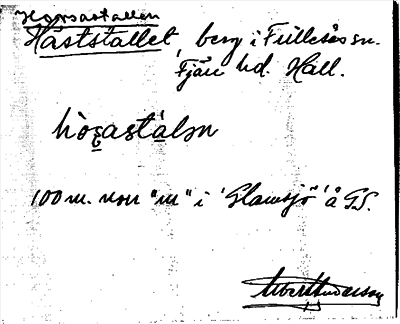 Horsastallen
Häststallet, berg i Frillesås sn.
Fjäre hd. Hall.
hòrastáln
100 m. norr "m" i 'Glamsjö' å GS.
Albert Andersson